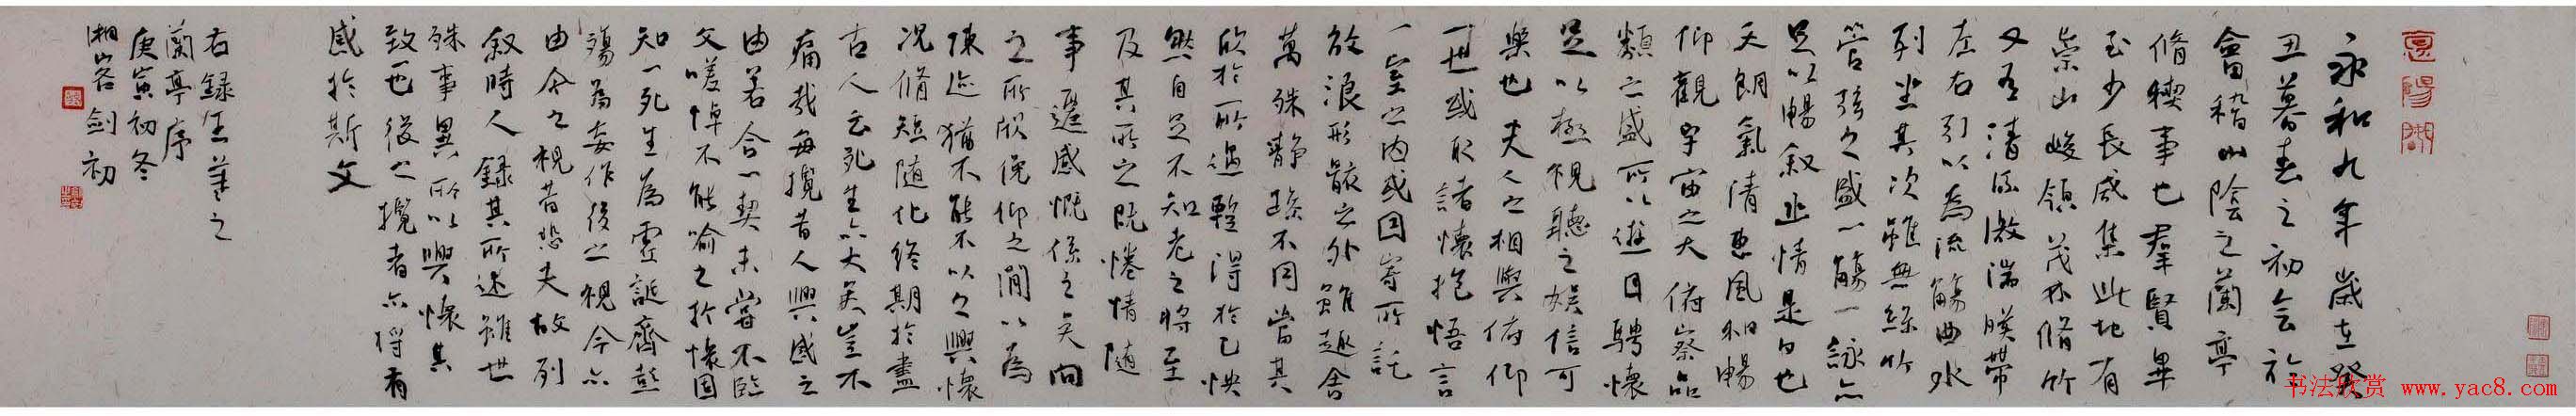 永和九年歲在癸
丑暮春之初会於
會稽山陰之蘭亭
脩稧事也羣賢畢
至少長咸集此地有
崇山峻領茂林脩竹
又有清流激湍暎帶
左右引以為流觴曲水
列坐其次雖無絲竹
管弦之盛一觴一詠亦
足以暢敘幽情是日也
天朗氣清惠風和暢
仰觀宇宙之大俯察品
類之盛所以遊目騁懷
足以極視聽之娛信可
樂也夫人之相與俯仰
一世或取諸懷抱悟言
一室之内或因寄所託
放浪形骸之外雖趣舍
萬殊静躁不同當其
欣於所遇蹔得於己怏
然自足不知老之將至
及其所之既惓情隨
事遷感慨係之矣向
之所欣俛仰之間以為
陳迹猶不能不以之興懷
況脩短隨化終期於盡
古人云死生亦大矣豈不
痛哉每攬昔人興感之
由若合一契未嘗不臨
文嗟悼不能喻之於懷固
知一死生為虛誕齊彭
殤為妄作後之視今亦
由今之視昔悲夫故列
敘時人録其所述雖世
殊事異所以興懷其
致一也後之攬者亦將有
感於斯文
右録王羲之
蘭亭序
庚寅初冬
湘 劍初
书法欣赏 www.yac8.com